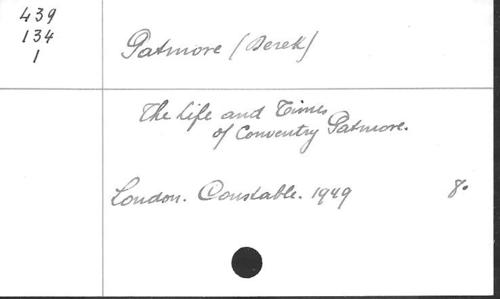 439
134
1
Patmore (Derek)
The Life and Times
of Conventry Patmore.
London. Constable. 1949 8°